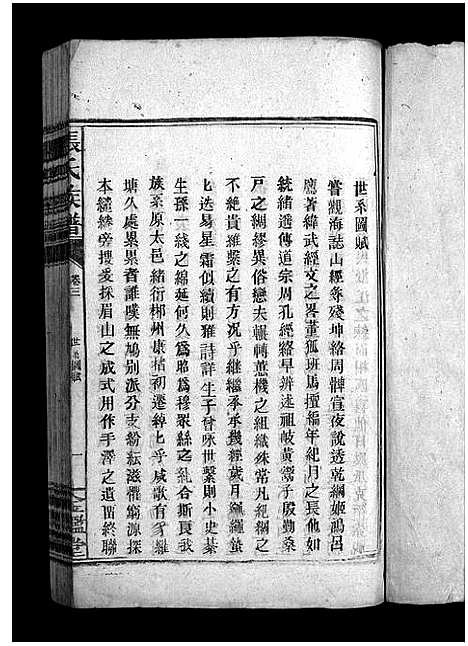 世系圖賦
嘗觀海誌山經尋殘坤絡周髀宣夜說透乾綱姬鴻呂
鷹著緯武經文之畧董孤班馬擅編年紀月之長他如
統緒遞傳道宗周孔經絡早辨述祖岐黃鴛子殷勤桑
戸之綢繆異俗戀夫輾轉蕙機之組織殊常凡經綱之
不絕貴維繫之有方况乎繼繼承承幾經歲月繩繩蟄
匕迭易星霜似續則雅詩詳生子曾咏世繫則小史慕
生孫一綫之綿延何久爲昭爲穆衆絲之糺合斯長我
族系原太邑緒衍郴州康祜初遷綷匕乎咸歌有子羅
塘久處纍纍者誰嘆無鳩別派分支紛紜滋濯窮源探
本縷縷旁搜爰採眉山之成式用作手澤之遺畱終聯
張氏族譜
卷三
世系圖賦
一
金鑑堂